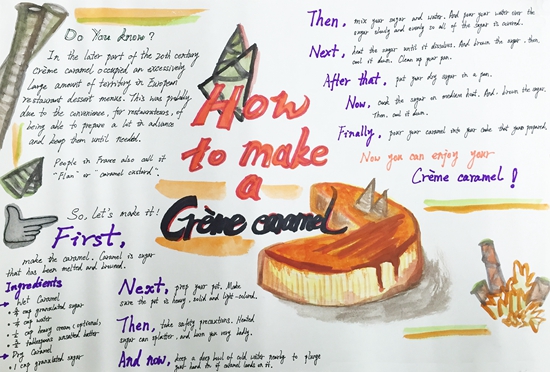 Do You know?
In the later part of the 20th century
Crème caramel occupied an excessively
large amount of territiry in European
restaurant dessert menus. This was probably
due to the convenience, for restaurateurs, of
being able to prepare a lot in advance
and keep them until needed.
People in France also call it
"Flan" or "caramel custard".
So, let's make it!
First,
make the caramel. Caramel is sugar
that has been melted and browned.
Ingredients
Wet Caramel
cup granulated sugar
cup water
cup heavy cream (optional)
tablespoons unsalted butter
Dry Caramel
1 cup granulated sugar
How
to make
a
Crème
Next, prep your pot. Make
sure the pot is heavy, solid and light-colored.
Then, take safety precautions. Heated
sugar can splatter, and burn you very badly.
And now, keep a deep bowl of cold water nearby to plunge
your hand in, if caramel lands on it.
Then, mix your sugar and water. And pour your water over the
sugar slowly and evenly so all of the sugar is covered.
Next, heat the sugar until it dissolves. And brown the sugar. then,
cool it down. Clean up your pan.
After that, put your dry sugar in a pan.
Now, cook the sugar on medium heat. And, brown the sugar.
Then, cool it down.
Finally, pour your caramel into your cake that you prepared,
Now you can enjoy your
Crème caramel!